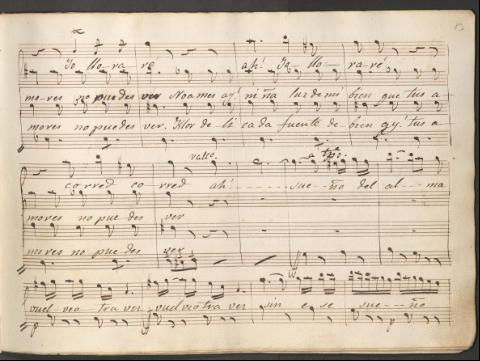 Yo llo-ra-ré ah! Yo llo-ra-ré
mo-res no puedes ver No ames ay! ni ña luz de mi bien que tus a
mores no puedes ver. Flor de li cada fuente de bien qy. tus a
ralle. a tpo.
corred corred ah! - - - - - sue--ño del al---ma
mores no pue-des ver
mores no pue des ver
vuel veo tra ver vuel vio tra ver sin e se sue---ño